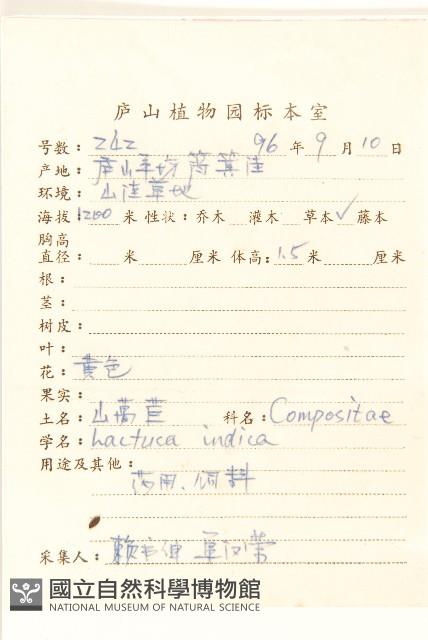 庐山植物园标本室
号数: 242 96 年 9 月 10 日
产地: 庐山 筲箕洼
环境: 山洼草地
海拔: 1200 米 性状: 乔木 灌木 草本 ✓ 藤本
胸高
直径: 米 厘米 体高: 1.5 米 厘米
根:
茎:
树皮:
叶:
花: 黄色
果实:
土名: 山莴苣 科名: Compositae
学名: Lactuca indica
用途及其他:
药用、饲料
采集人: 赖书绅 单汉荣
國立自然科學博物館
NATIONAL MUSEUM OF NATURAL SCIENCE